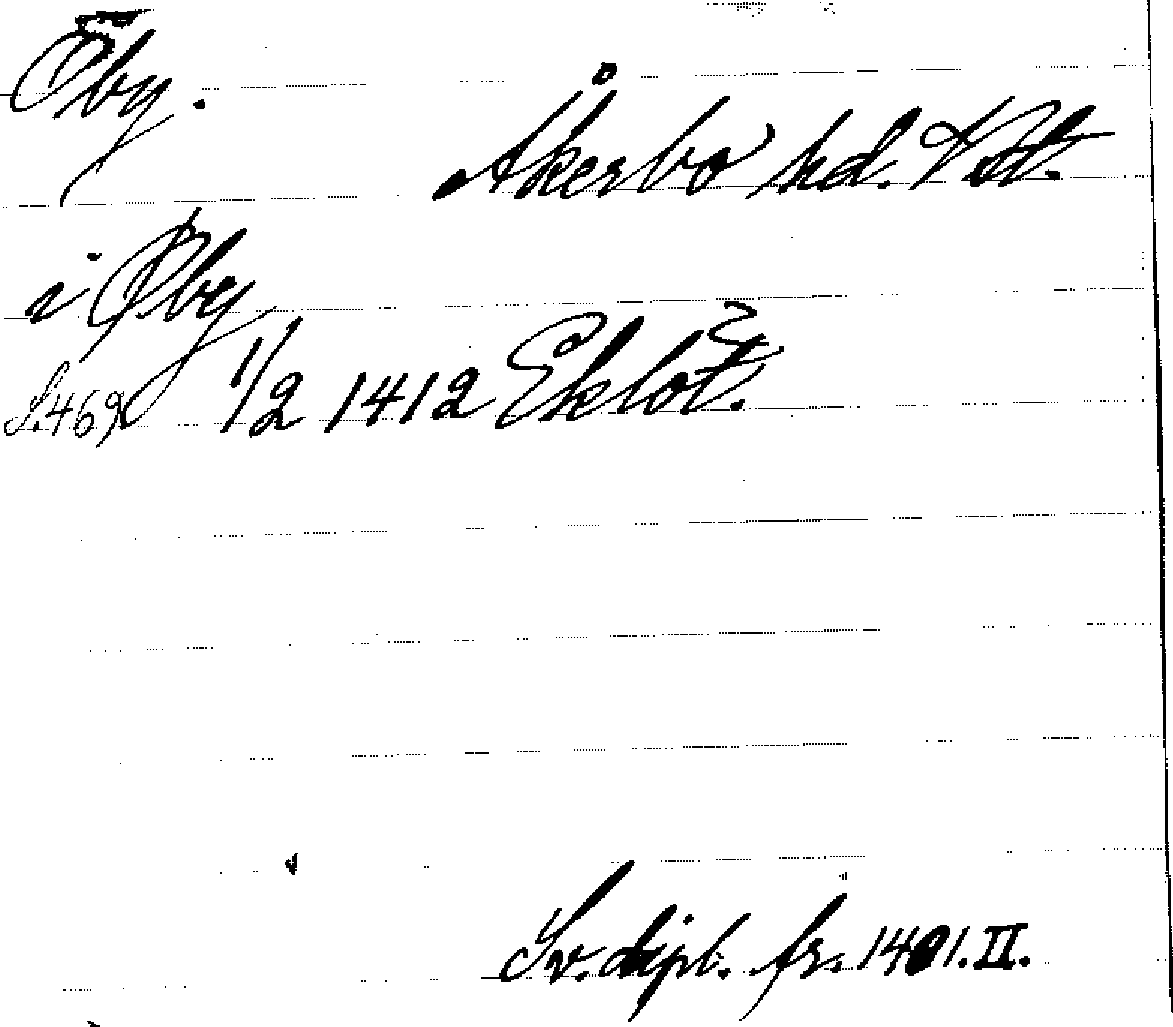 Öby.
Åkerbo hd. Vstm.
i Øby
S.469 1/2 1412 Eklöt.
Sv. dipl. fr. 1401. II.